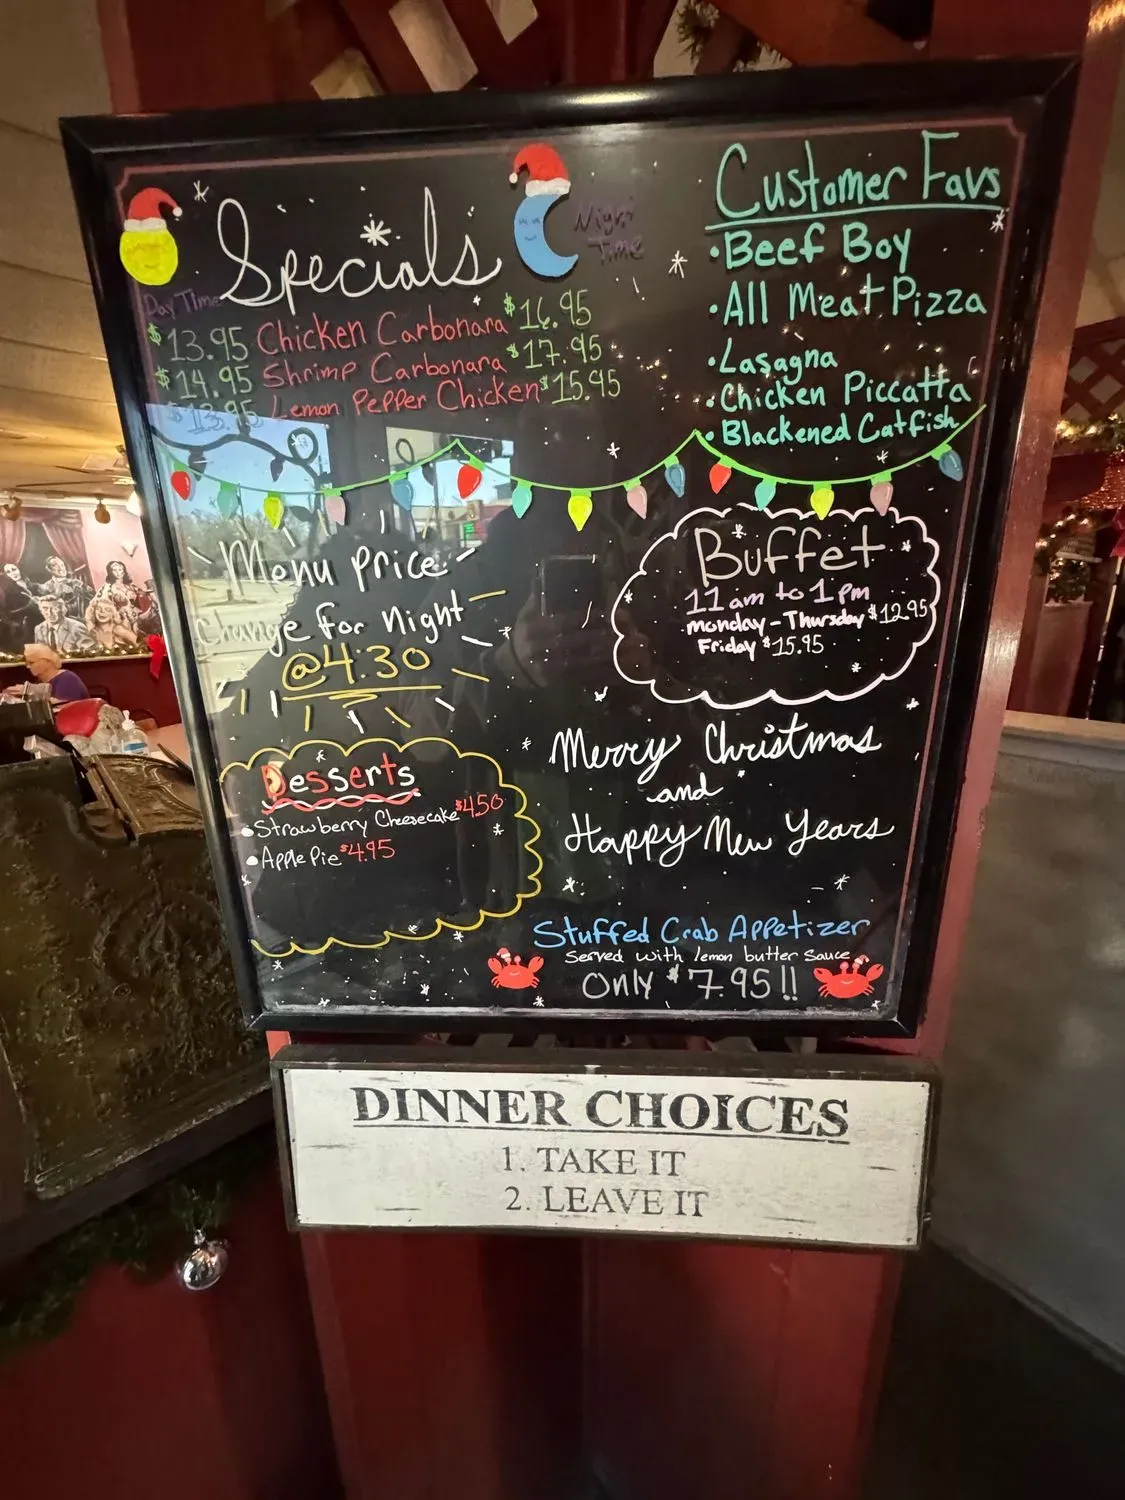 Specials
Day Time
Night
Time
$13.95 Chicken Carbonara $16.95
$14.95 Shrimp Carbonara $17.95
$13.95 Lemon Pepper Chicken $15.95
Customer Favs
• Beef Boy
• All Meat Pizza
• Lasagna
• Chicken Piccatta
• Blackened Catfish
Menu price
change for Night
@4:30
Buffet
11am to 1pm
monday - Thursday $12.95
Friday $15.95
Desserts
• Strawberry Cheesecake $4.50
• Apple Pie $4.95
Merry Christmas
and
Happy New Years
Stuffed Crab Appetizer
Served with lemon butter sauce
Only $7.95!!
DINNER CHOICES
1. TAKE IT
2. LEAVE IT